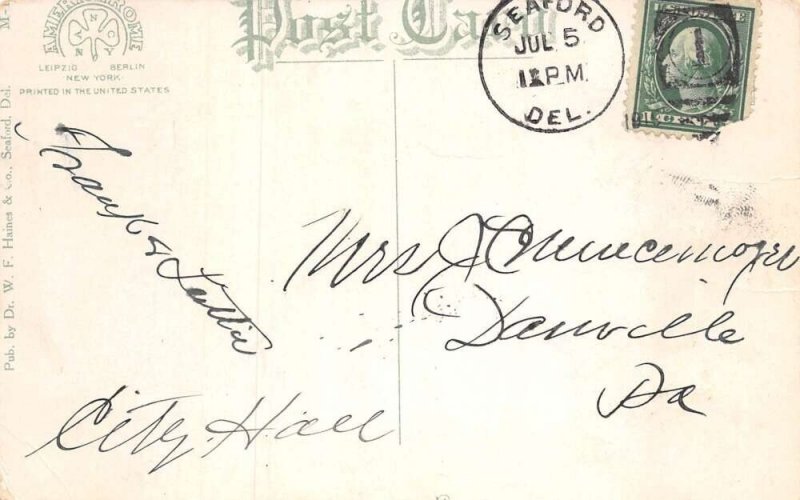 AMERICHROME
Post Card
LEIPZIG BERLIN
NEW YORK
PRINTED IN THE UNITED STATES
SEAFORD
JUL 5
12 P.M.
DEL.
1 CENT
Pub. by Dr. W. F. Haines & Co., Seaford, Del. M-
Frank & Lettie
Mrs J
Danville
Pa
City Hall